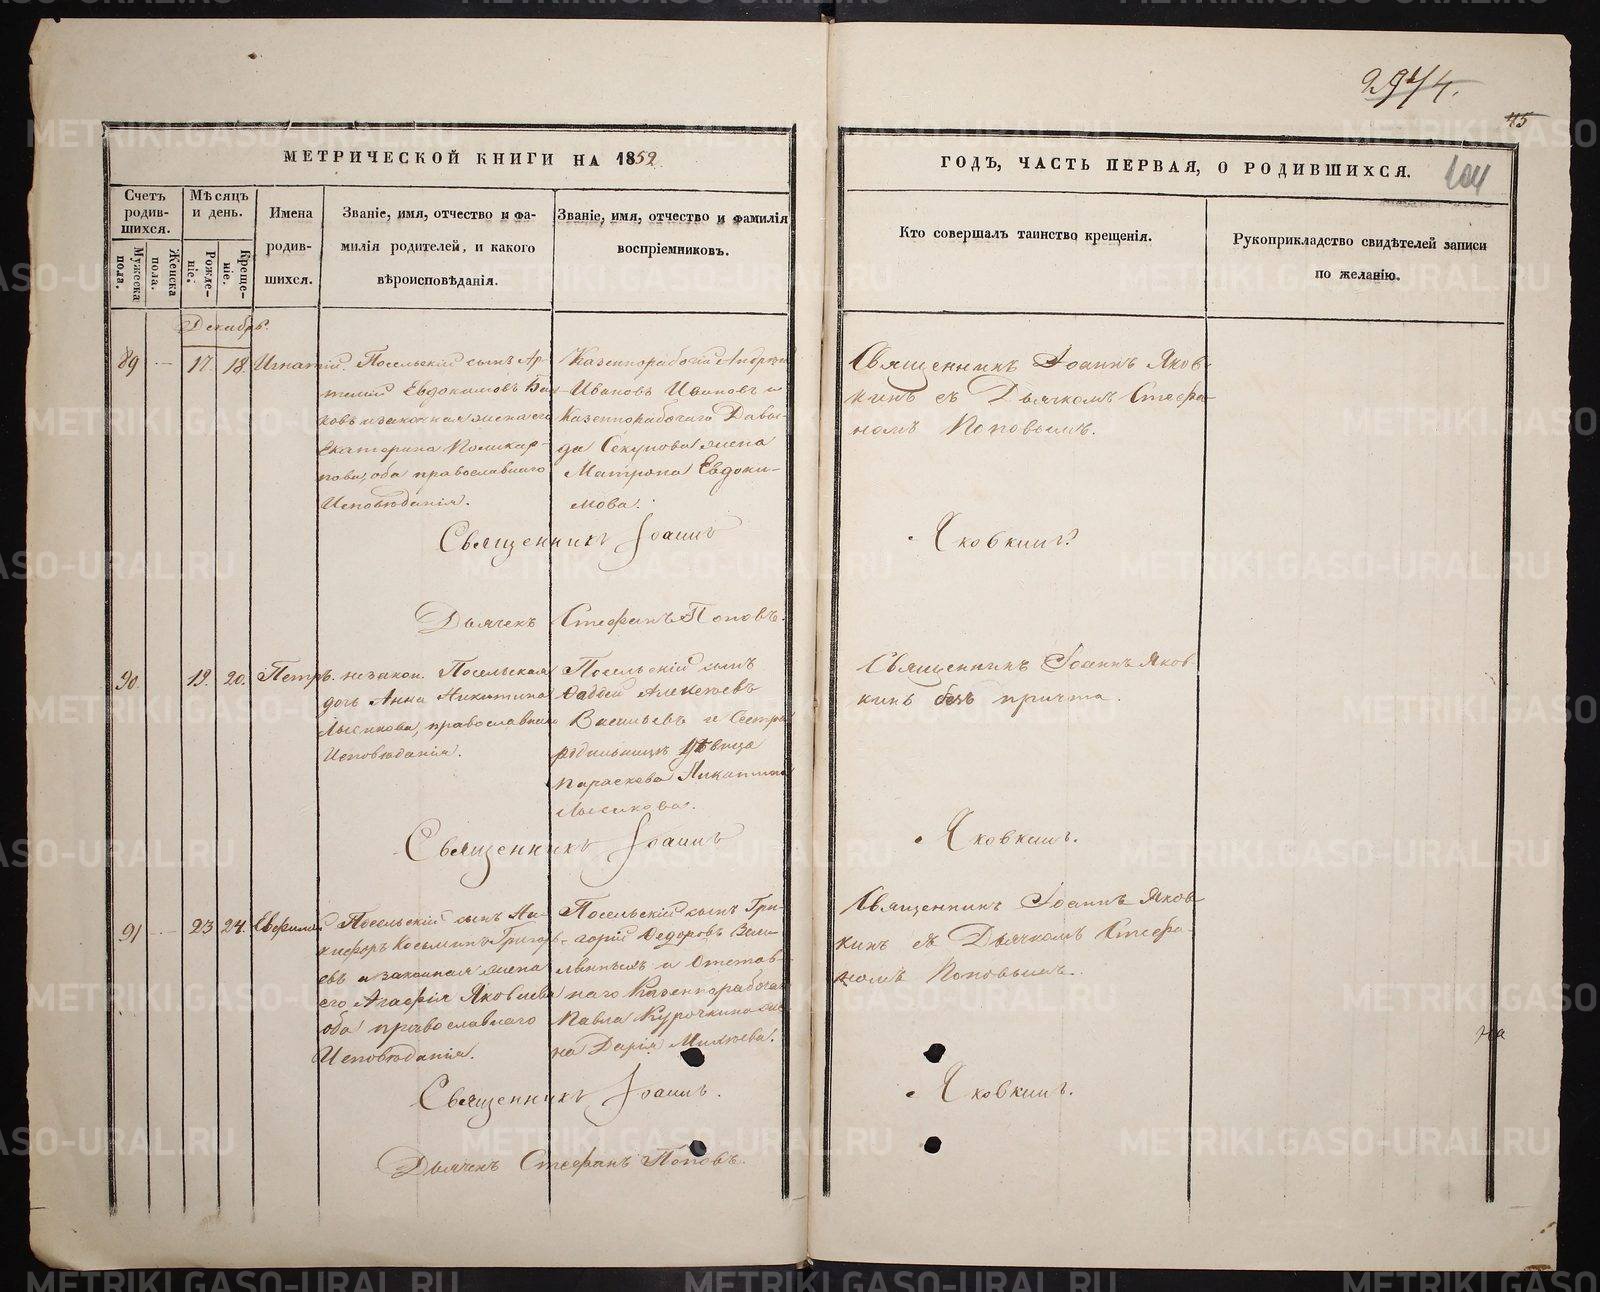 2974.
45
104
МЕТРИЧЕСКОЙ КНИГИ НА 1859
ГОДЪ, ЧАСТЬ ПЕРВАЯ, О РОДИВШИХСЯ.
Счетъ родив-шихся.
Мужеска пола.
Женска пола.
Мѣсяцъ и день.
Рожде-ніе.
Креще-ніе.
Имена
родив-
шихся.
Званіе, имя, отчество и фа-
милія родителей, и какого
вѣроисповѣданія.
Званіе, имя, отчество и фамилія
воспріемниковъ.
Кто совершалъ таинство крещенія.
Рукоприкладство свидѣтелей записи
по желанію.
Декабрь.
89 17. 18. Игнатій.
Посельскій сынъ Ар-
темій Евдокимовъ
ковъ и законная жена его
Екатерина Поликар-
пова, оба православнаго
Исповѣданія.
Казеннорабочій Андрей
Ивановъ Ивановъ и
Казеннорабочаго Давы-
да Секунова жена
Матрона Евдоки-
мова.
Священникъ Іоаннъ Яков-
кинъ съ Дьячкомъ Стефа-
номъ Поповымъ.
Священникъ Іоаннъ Яковкинъ.
Дьячекъ Стефанъ Поповъ.
90. 19. 20. Петръ. незакон.
Посельская
дочь Анна Никитина
Лысикова, православнаго
Исповѣданія.
Посельскій сынъ
Фаддей Алексѣевъ
Васильевъ и Сестра
родильницы дѣвица
Параскева Никитина
Лысикова.
Священникъ Іоаннъ Яков-
кинъ безъ причта.
Священникъ Іоаннъ Яковкинъ.
91 23 24. Евфимій
Посельскій сынъ Ни-
кифоръ Косьминъ Григорь-
евъ и законная жена
его Агафія Яковлева
оба православнаго
Исповѣданія.
Посельскій сынъ Гри-
горій Федоровъ
и Отстав-
наго Казеннорабочаго
Павла Курочкина же-
на Дарія Михѣева.
Священникъ Іоаннъ Яков-
кинъ съ Дьячкомъ Стефа-
номъ Поповымъ.
На
Священникъ Іоаннъ. Яковкинъ.
Дьячекъ Стефанъ Поповъ.
METRIKI.GASO-URAL.RU